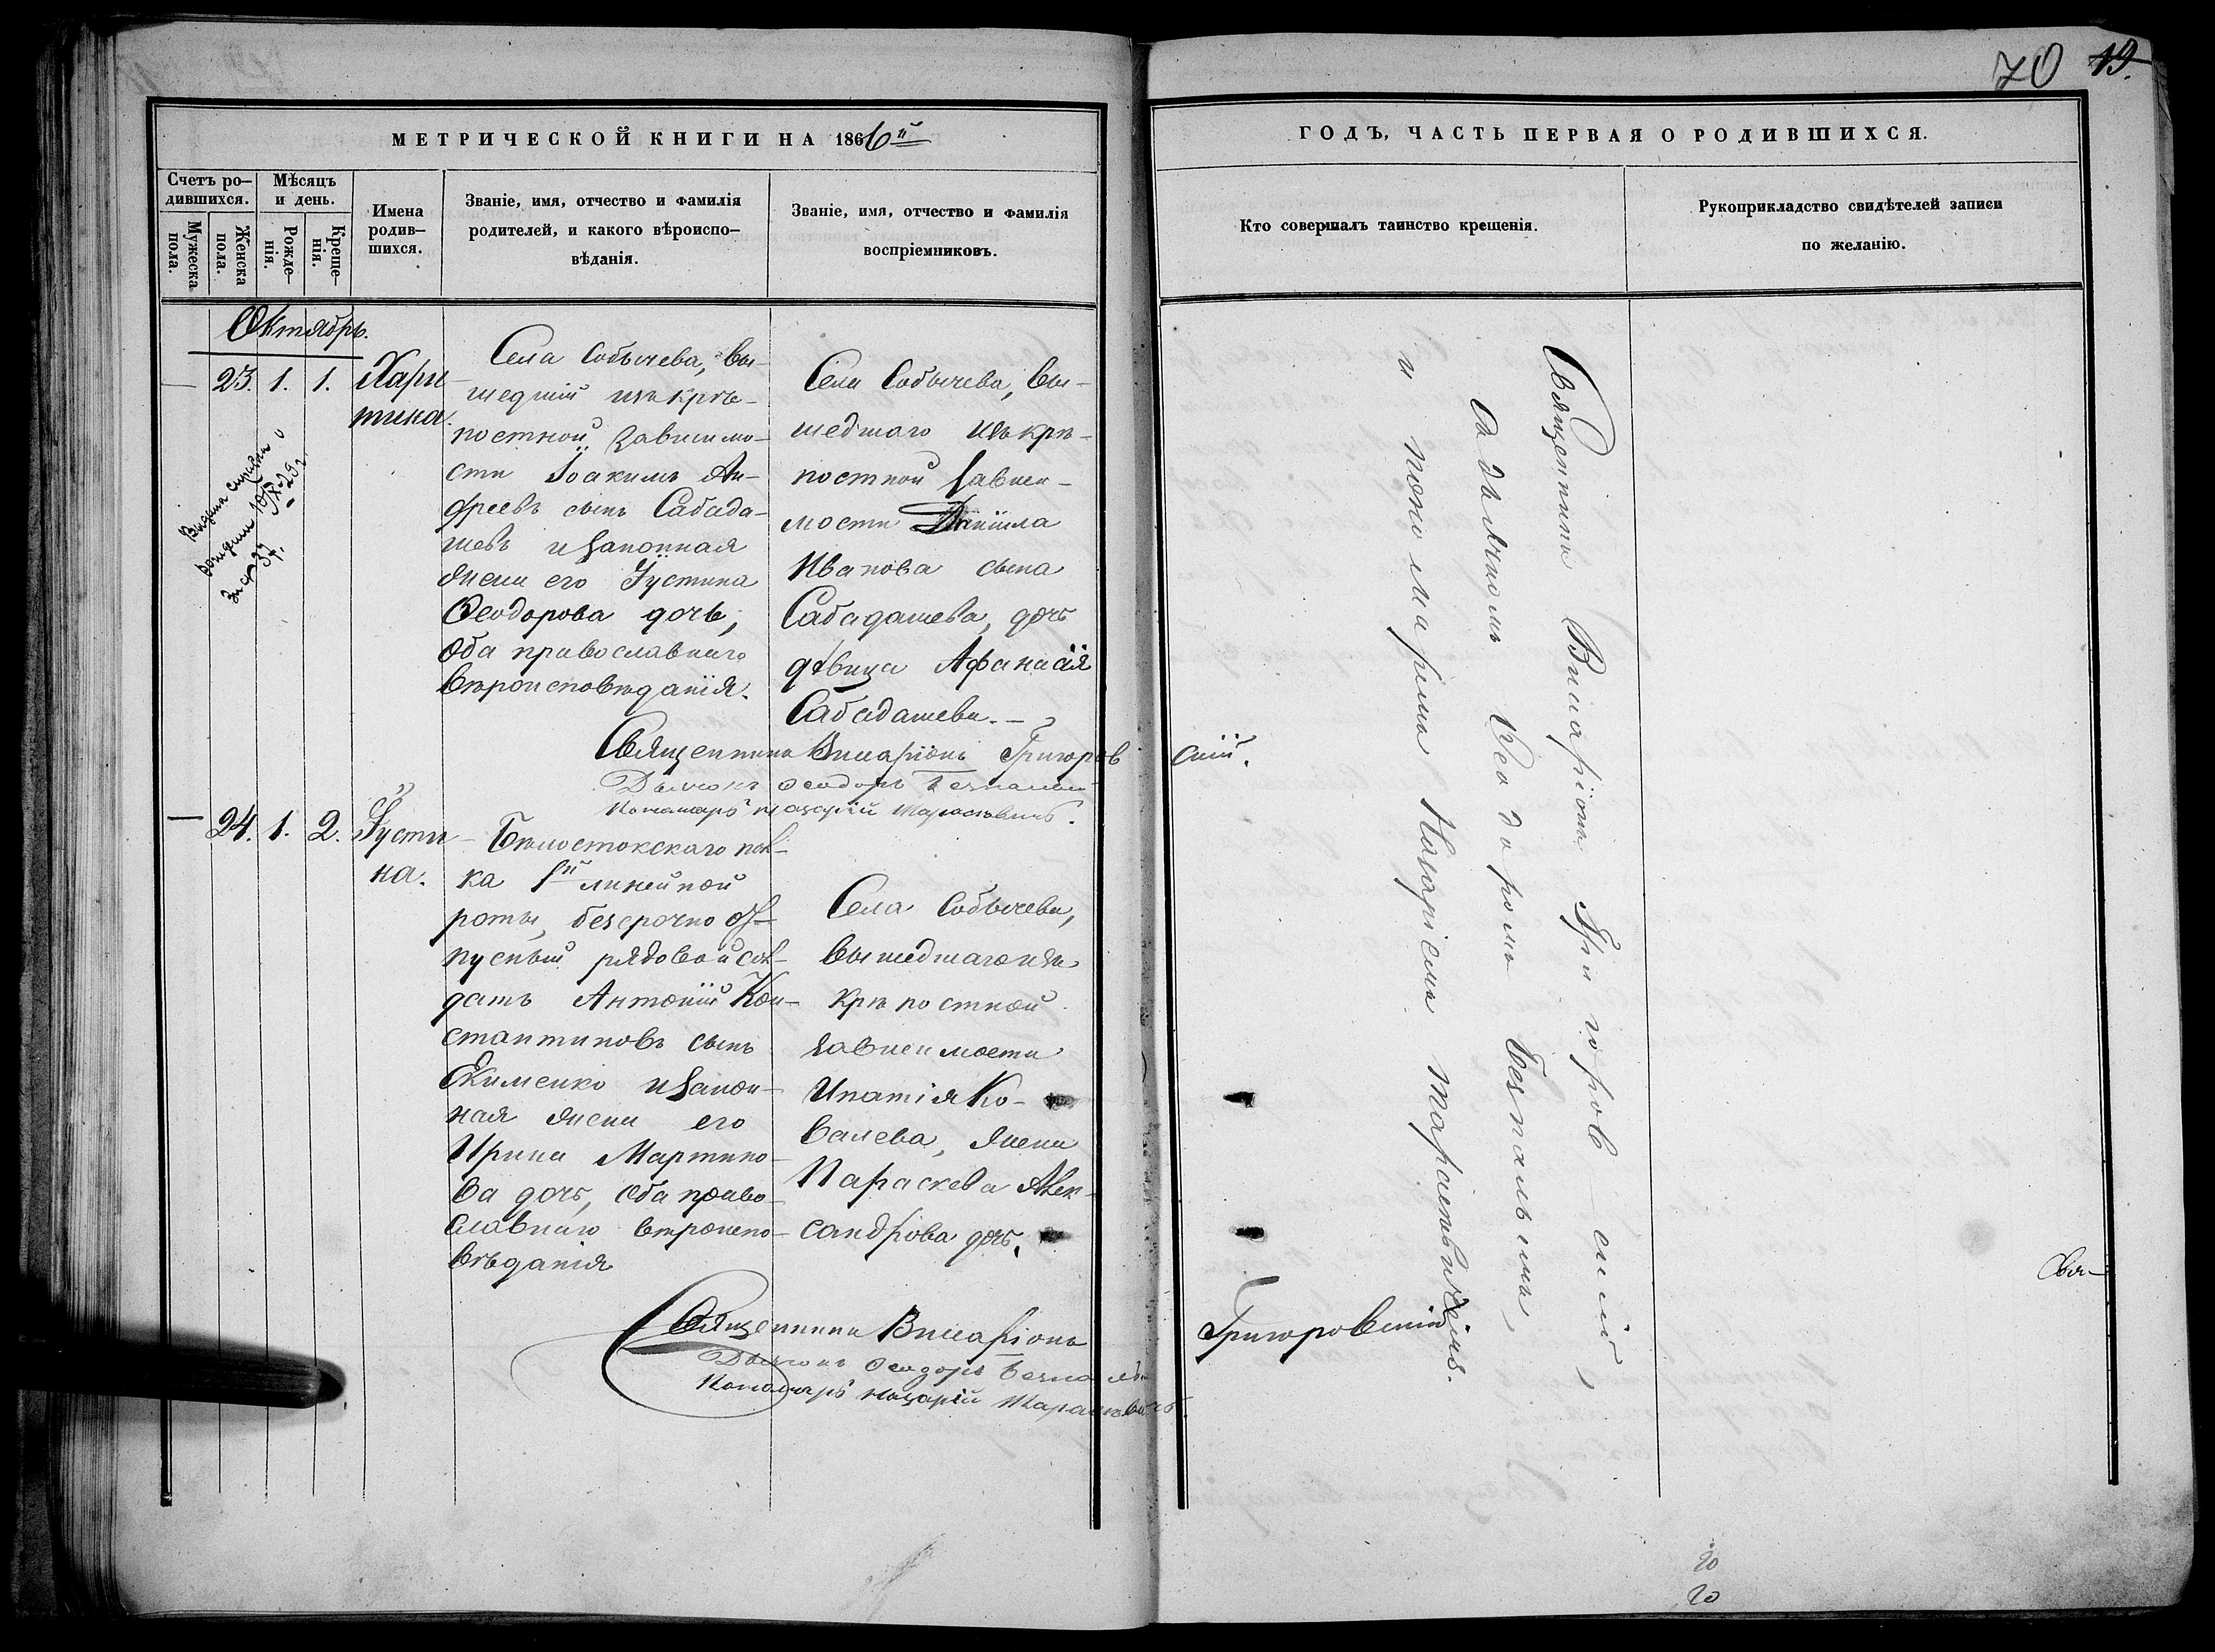 70 19.
МЕТРИЧЕСКОЙ КНИГИ НА 1866й
ГОДЪ, ЧАСТЬ ПЕРВАЯ О РОДИВШИХСЯ.
Счетъ ро-
дившихся.
Мужеска
пола.
Женска
пола.
Мѣсяцъ
и день.
Рожде-
нія.
Креще-
нія.
Имена
родив-
шихся.
Званіе, имя, отчество и фамилія
родителей, и какого вѣроиспо-
вѣданія.
Званіе, имя, отчество и фамилія
воспріемниковъ.
Кто совершалъ таинство крещенія.
Рукоприкладство свидѣтелей записи
по желанію.
Октябрь.
— 23. 1. 1. Хари-
тина.
Села Собычева, вы-
шедшій изъ крѣ-
постной зависимо-
сти Іоакимъ Ан-
дреевъ сынъ Сабада-
шевъ и законная
жена его Іустина
Ѳеодорова дочь,
оба православнаго
вѣроисповѣданія.
Села Собычева, вы-
шедшаго изъ крѣ-
постной зависи-
мости Даніила
Иванова сына
Сабадашева, дочь
дѣвица Афанасія
Сабадашева.—
Священникъ Висаріонъ Григоров
скій.
Дьячокъ Ѳеодоръ
Пономарь Назарій Тарасьевичъ.
Выдана справка
— 24. 1. 2. Іусти-
на.
Бѣлостокскаго пол-
ка 1й линейной
роты, безсрочно от-
пускный рядовой сол-
датъ Антоній Кон-
стантиновъ сынъ
Якименко и закон-
ная жена его
Ирина Мартино-
ва дочь, оба право-
славнаго вѣроиспо-
вѣданія
Села Собычева,
вышедшаго изъ
крѣпостной
зависимости
Ипатія Ко-
валева, жена
Параскева Алек-
сандрова дочь.
Священникъ Висаріонъ
Григоровскій
Дьячокъ Ѳеодоръ
Пономарь Назарій Тарасьевичъ.
Священникъ Висаріонъ Григоровскій,
съ дьячкомъ Ѳеодоромъ
и пономаремъ Назаріемъ Тарасьевичемъ.
Свя-
20
20